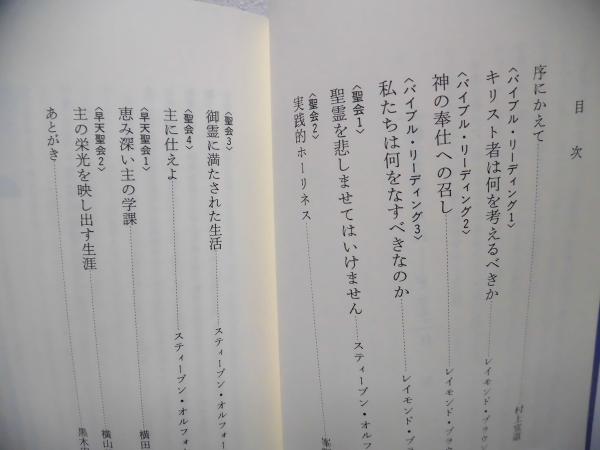 目次
序にかえて……村上宣道
〈バイブル・リーディング1〉
キリスト者は何を考えるべきか……レイモンド・ブラウン
〈バイブル・リーディング2〉
神の奉仕への召し……レイモンド・ブラウ
〈バイブル・リーディング3〉
私たちは何をなすべきなのか……レイモンド・ブ
〈聖会1〉
聖霊を悲しませてはいけません……スティーブン・オルフ
〈聖会2〉
実践的ホーリネス……
〈聖会3〉
御霊に満たされた生活……スティーブン・オルフォー
〈聖会4〉
主に仕えよ……スティーブン・オルフォ
〈早天聖会1〉
恵み深い主の学課……横田
〈早天聖会2〉
主の栄光を映し出す生涯……横山
あとがき……黒木